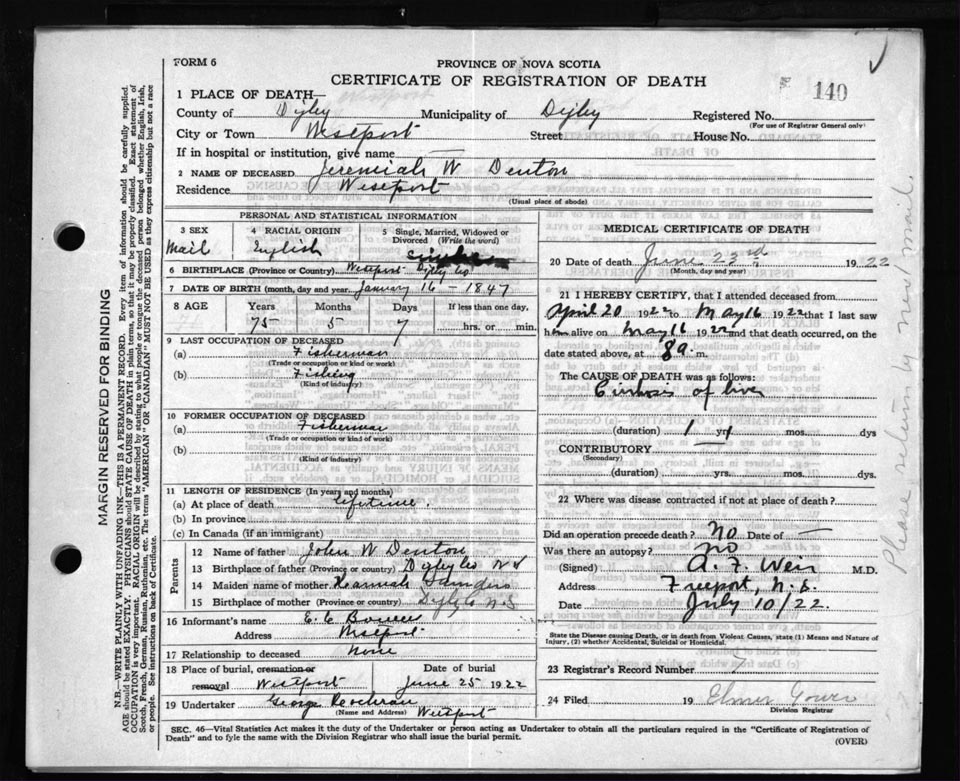 FORM 6
PROVINCE OF NOVA SCOTIA
CERTIFICATE OF REGISTRATION OF DEATH
140
1 PLACE OF DEATH—
County of Digby Municipality of Digby Registered No.
(For use of Registrar General only)
City or Town Westport Street House No.
If in hospital or institution, give name —
2 NAME OF DECEASED Jeremiah W Denton
Residence Westport
(Usual place of abode)
PERSONAL AND STATISTICAL INFORMATION
3 SEX 4 RACIAL ORIGIN 5 Single, Married, Widowed or Divorced (Write the word)
Mail English
6 BIRTHPLACE (Province or Country) Westport Digby Co
7 DATE OF BIRTH (month, day and year. January 16 - 1847
8 AGE Years Months Days If less than one day,
75 5 7 hrs. or min.
9 LAST OCCUPATION OF DECEASED
(a) Fisherman
(Trade or occupation or kind or work)
(b) Fishing
(Kind of industry)
10 FORMER OCCUPATION OF DECEASED
(a) Fisherman
(Trade or occupation or kind of work)
(b)
(Kind of industry)
11 LENGTH OF RESIDENCE (In years and months)
(a) At place of death lifetime.
(b) In province
(c) In Canada (if an immigrant)
Parents
12 Name of father John W Denton
13 Birthplace of father (Province or country) Digby Co N S
14 Maiden name of mother Hannah Sanders
15 Birthplace of mother (Province or country) Digby Co N.S
16 Informant's name E. C. Bowers
Address Westport
17 Relationship to deceased None
18 Place of burial, cremation or removal Westport Date of burial June 25 1922
19 Undertaker George
(Name and Address) Westport
MEDICAL CERTIFICATE OF DEATH
20 Date of death June 23rd 1922
(Month, day and year)
21 I HEREBY CERTIFY, that I attended deceased from
April 20 1922 to May 16 1922 that I last saw
him alive on May 16 1922 and that death occurred, on the
date stated above, at 8 a. m.
The CAUSE OF DEATH was as follows:
Cirrhosis of liver
(duration) 1 yr mos. dys
CONTRIBUTORY —
(Secondary)
(duration) yrs. mos. dys.
22 Where was disease contracted if not at place of death?
Did an operation precede death? No Date of —
Was there an autopsy? No
(Signed) A. F. Weir M.D.
Address Freeport, N.S.
Date July 10/22.
State the Disease causing Death, or in death from Violent Causes, state (1) Means and Nature of
Injury, (2) whether Accidental, Suicidal or Homicidal.
23 Registrar's Record Number
24 Filed 19 Elmer Gower
Division Registrar
SEC. 46—Vital Statistics Act makes it the duty of the Undertaker or person acting as Undertaker to obtain all the particulars required in the "Certificate of Registration of
Death" and to fyle the same with the Division Registrar who shall issue the burial permit.
(OVER)
MARGIN RESERVED FOR BINDING
N.B.—WRITE PLAINLY WITH UNFADING INK—THIS IS A PERMANENT RECORD. Every item of information should be carefully supplied.
AGE should be stated EXACTLY. PHYSICIANS should STATE CAUSE OF DEATH in plain terms, so that it may be properly classified. Exact statement of
OCCUPATION is very important. RACIAL ORIGIN will be described by stating to what people or tongue the deceased person belonged whether English, Irish,
Scotch, French, German, Russian, Ruthenian, etc. The terms "AMERICAN" OR "CANADIAN" MUST NOT BE USED as they express citizenship but not a race
or people. See instructions on back of Certificate.
Please return by next mail.